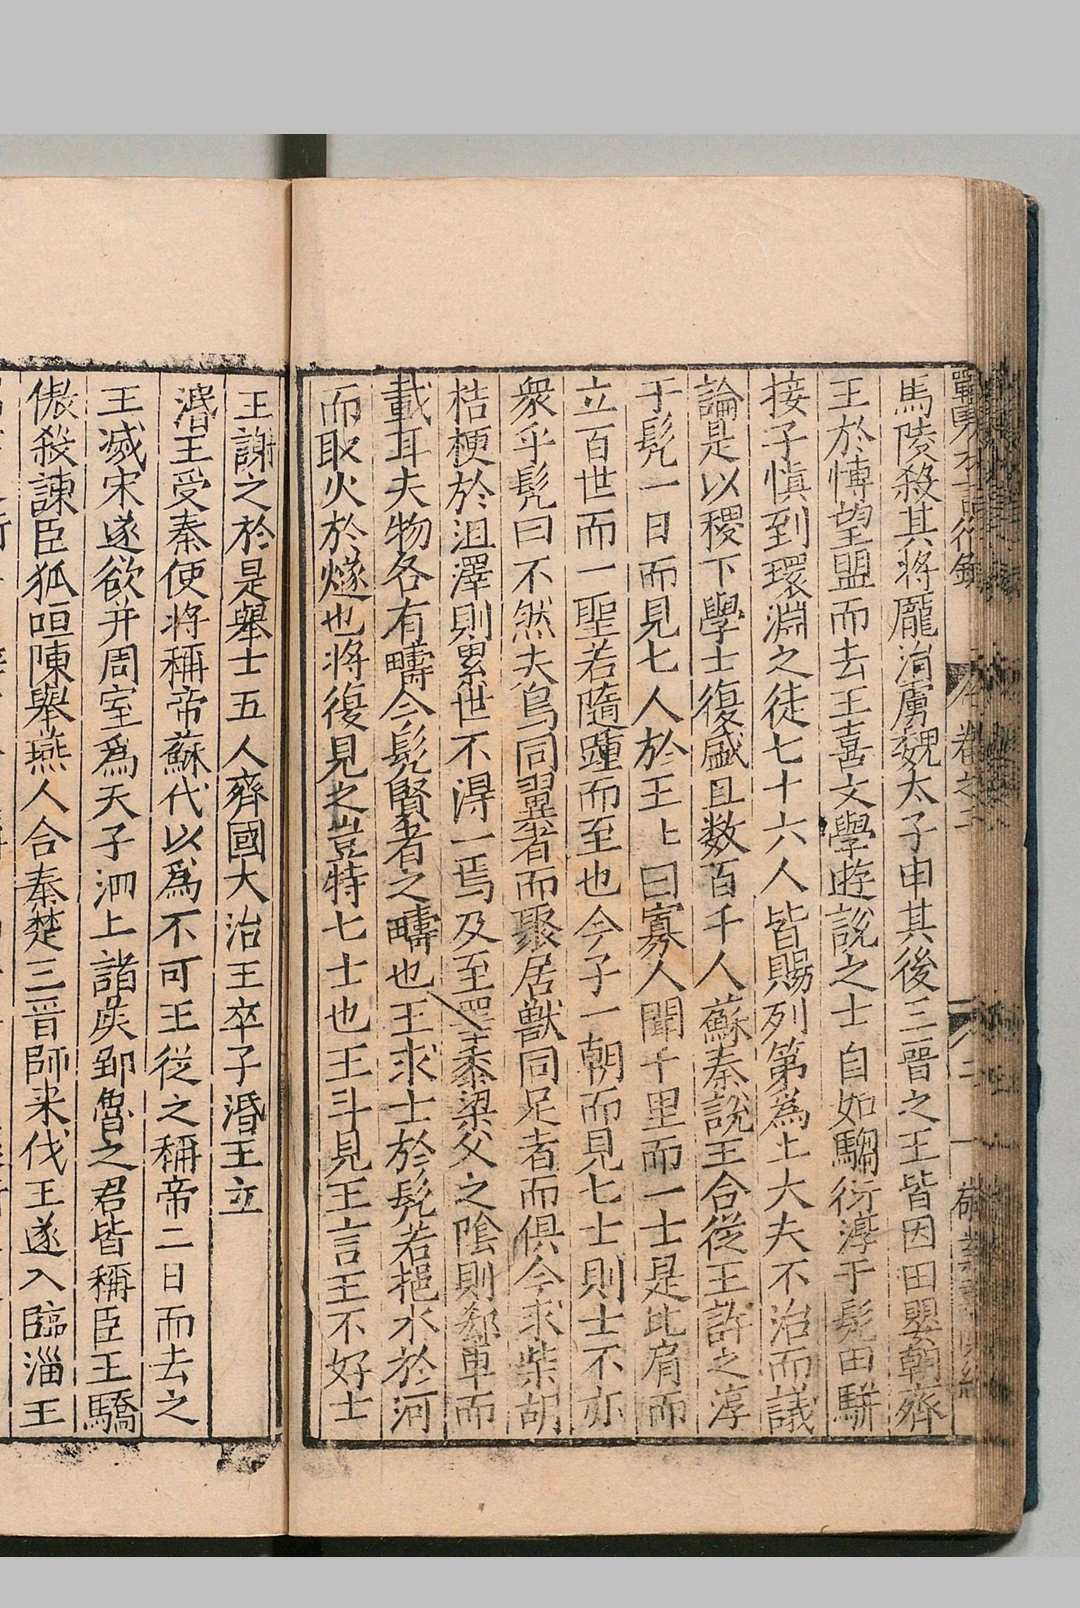 馬陵殺其將龐涓虜魏太子申其後三晋之王皆因田嬰朝齊
王於愽望盟而去王喜文學遊說之士自如騶衍淳于髠田駢
接子慎到環淵之徒七十六人皆賜列第為上大夫不治而議
論是以稷下學士復盛且数百千人蘇秦說王合從王許之淳
于髠一日而見七人於王〻曰寡人聞千里而一士是比肩而
立百世而一聖若隨踵而至也今子一朝而見七士則士不亦
衆乎髠曰不然夫鳥同翼者而聚居獸同足者而俱今求柴胡
桔梗於沮澤則累世不淂一焉及至睪黍梁父之隂則郄車而
載耳夫物各有疇今髠賢者之疇也王求士於髠若挹水於河
而取火於燧也將復見之豈特七士也王斗見王言王不好士
王謝之於是舉士五人齊國大治王卒子湣王立
湣王受秦使將稱帝蘇代以為不可王從之稱帝二日而去之
王滅宋遂欲并周室為天子泗上諸矦鄒魯之君皆稱臣王驕
殺諫臣狐咺陳舉燕人合秦楚三晋師来伐王遂入臨淄王